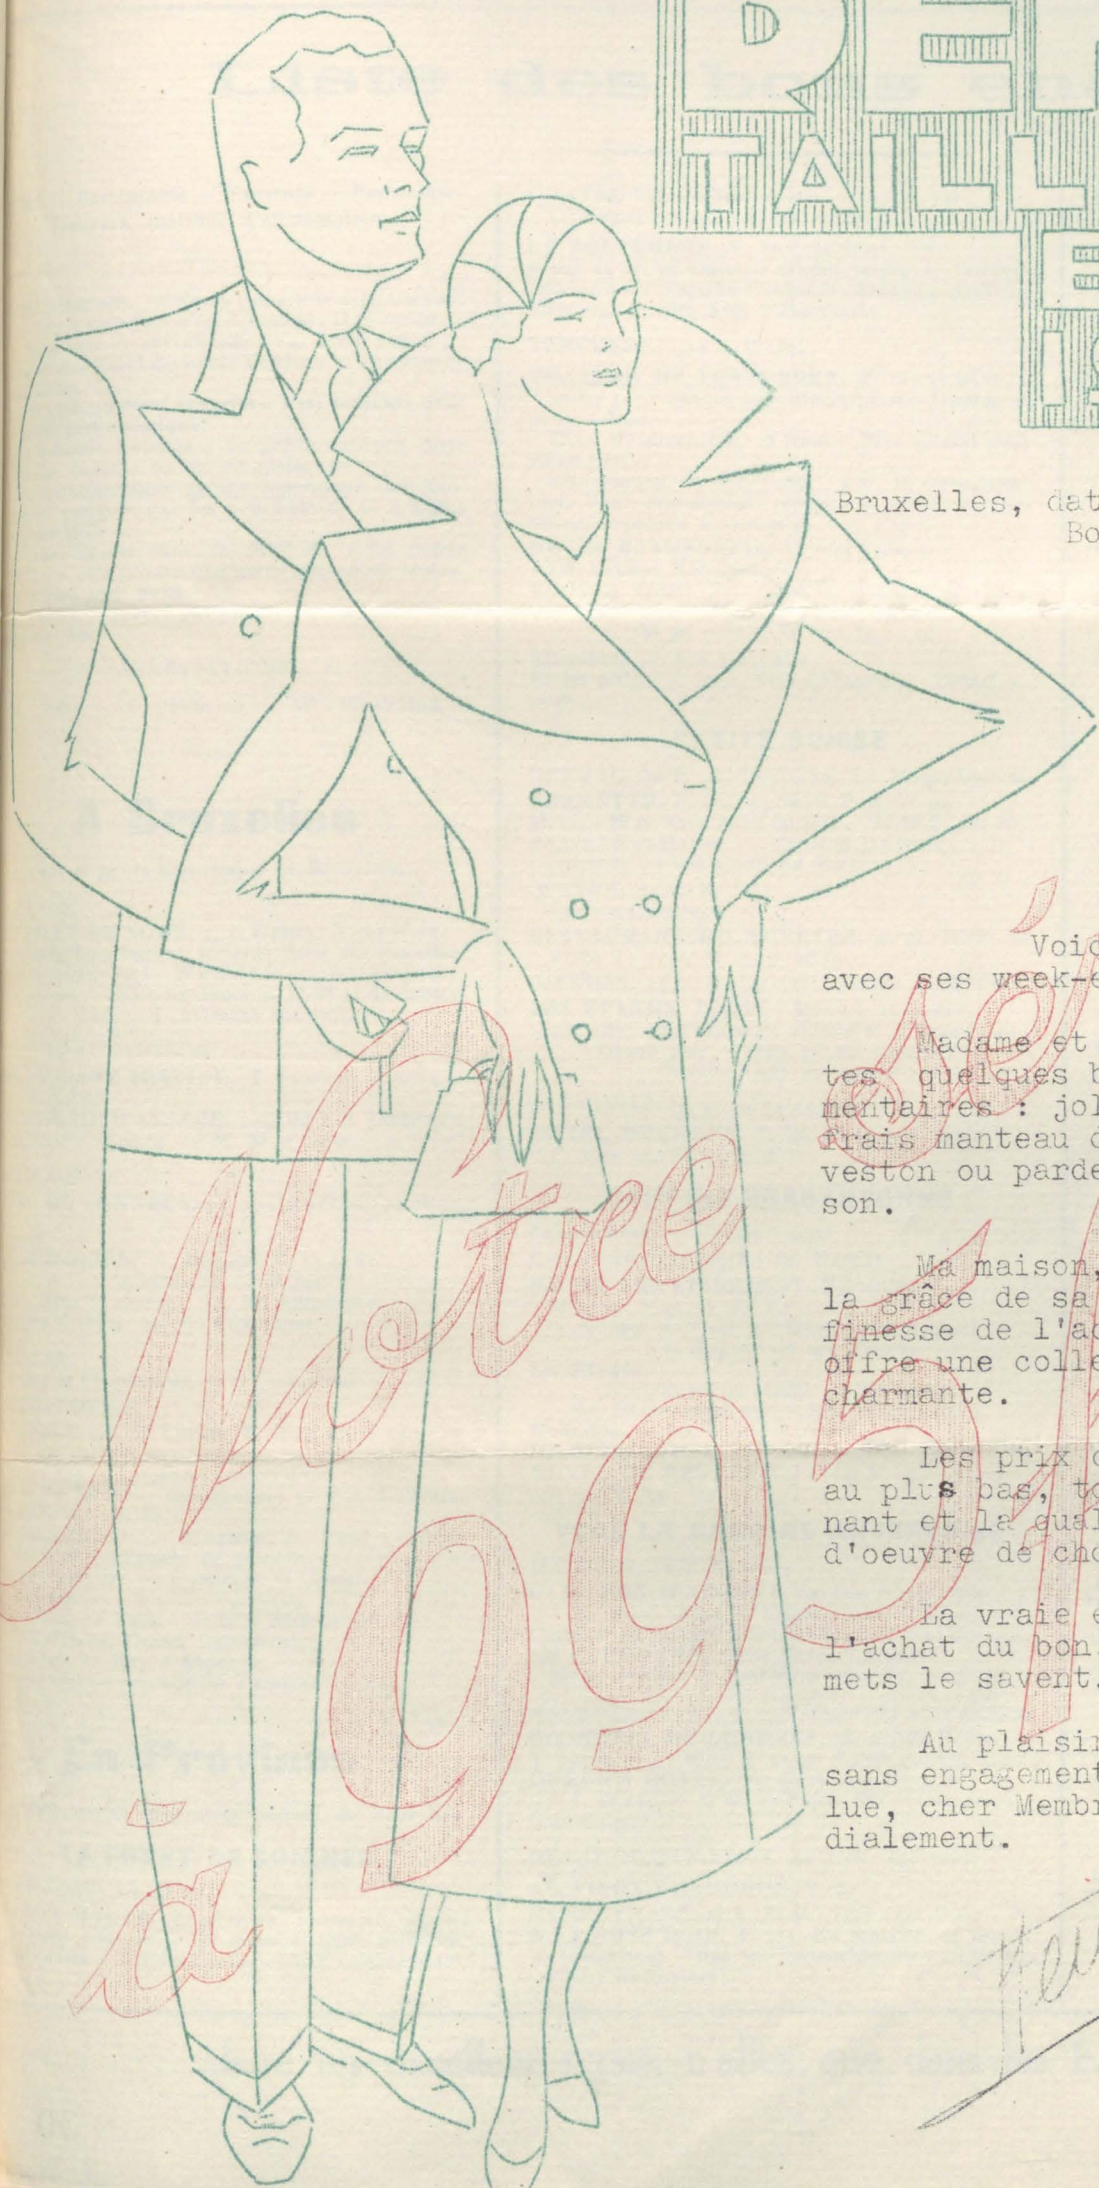 TAILL
Bruxelles, dat
Bo
Voic
avec ses week-e
Madame et
tes quelques b
mentaires : jol
frais manteau d
veston ou parde
son.
Ma maison,
la grâce de sa
finesse de l'ac
offre une colle
charmante.
Les prix c
au plus bas, to
nant et la qual
d'oeuvre de cho
La vraie é
l'achat du bon.
mets le savent.
Au plaisir
sans engagement
lue, cher Membr
dialement.
Notre sé
à 995 f